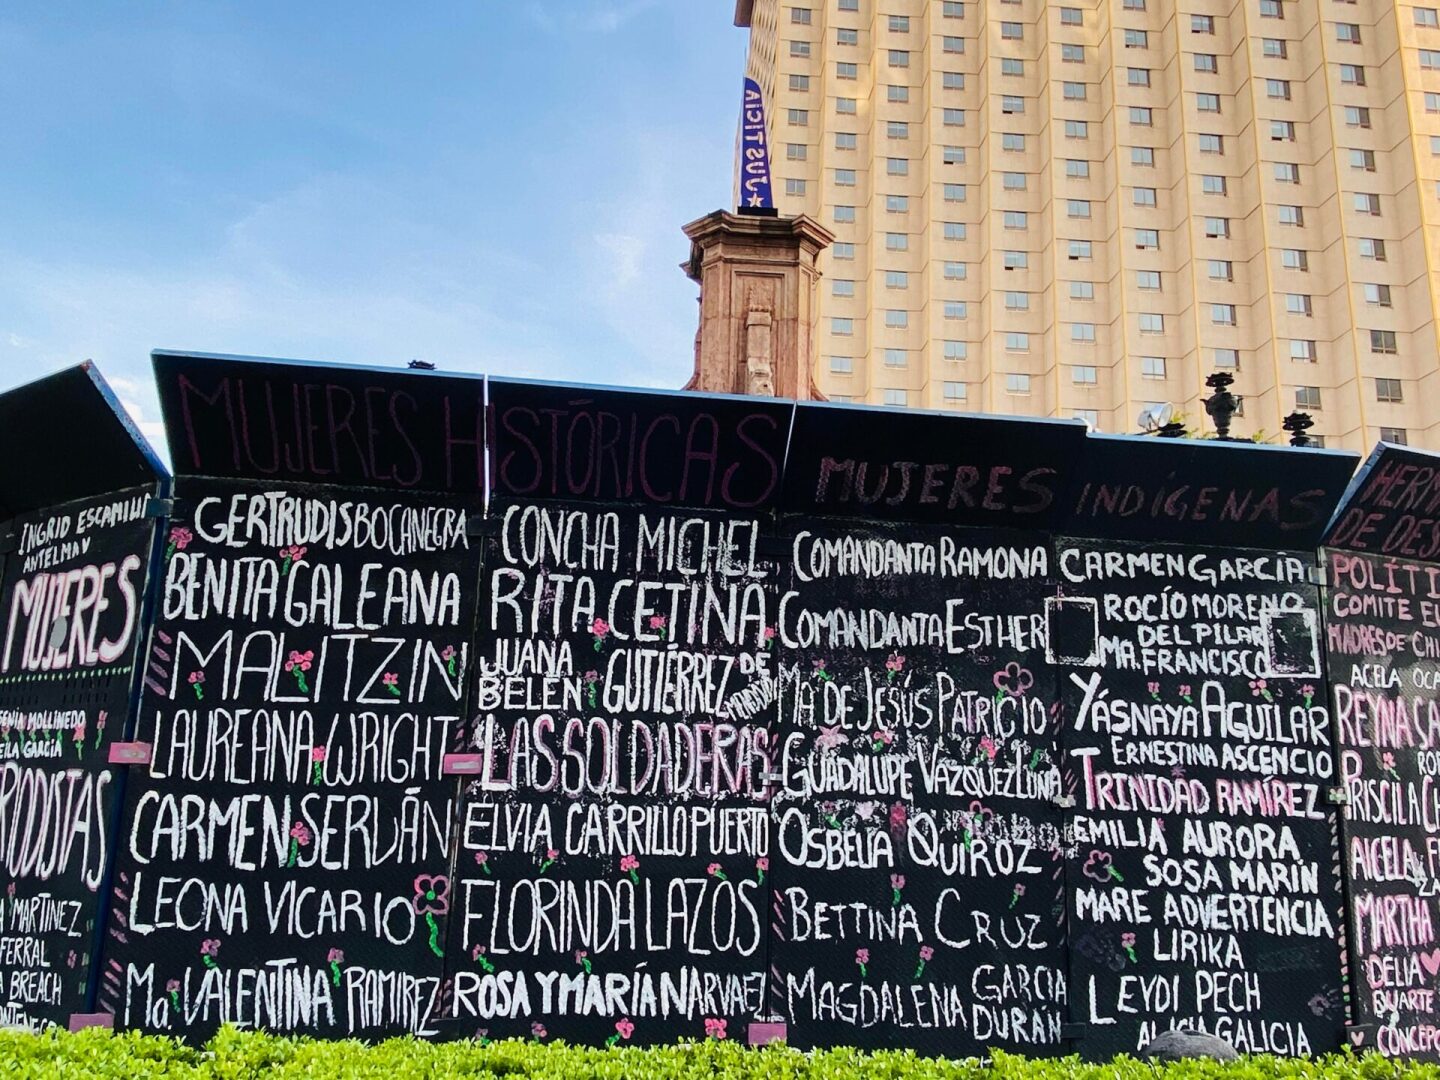 JUSTICIA
INGRID ESCAMILLA
ANTELMA V
MUJERES
MOLLINEDO
GARCIA
MARTINEZ
FERRAL
BREACH
MUJERES HISTÓRICAS
GERTRUDIS BOCANEGRA
BENITA GALEANA
MALITZIN
LAUREANA WRIGHT
CARMEN SERDÁN
LEONA VICARIO
Ma. VALENTINA RAMIREZ
CONCHA MICHEL
RITA CETINA
JUANA
BELÉN GUTIÉRREZ DE
MENDOZA
LAS SOLDADERAS
ELVIA CARRILLO PUERTO
FLORINDA LAZOS
ROSA Y MARÍA NARVAEZ
MUJERES INDÍGENAS
COMANDANTA RAMONA
COMANDANTA ESTHER
MA DE JESÚS PATRICIO
GUADALUPE VAZQUEZ LUNA
OSBELIA QUIROZ
BETTINA CRUZ
MAGDALENA GARCIA
DURAN
CARMEN GARCÍA
ROCÍO MORENO
DEL PILAR
MA. FRANCISCO
YÁSNAYA AGUILAR
ERNESTINA ASCENCIO
TRINIDAD RAMÍREZ
EMILIA AURORA
SOSA MARÍN
MARE ADVERTENCIA
LIRIKA
LEYDI PECH
ALICIA GALICIA
COMITE
MADRES DE
ACELA
REYNA
PRISCILA
AICELA
MARTHA
DELIA
DUARTE